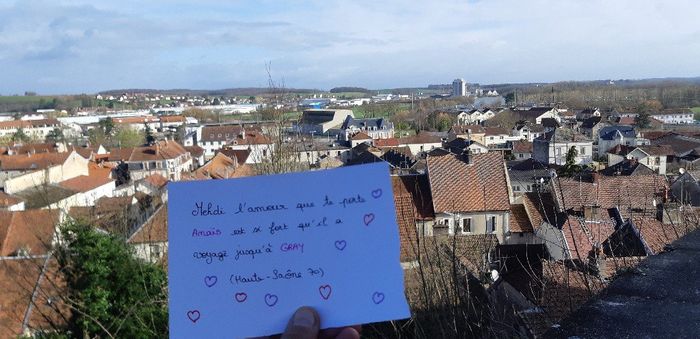 Mehdi l'amour que te porte
Anaïs est si fort qu'il a
voyagé jusqu'à GRAY
(Haute-Saône 70)